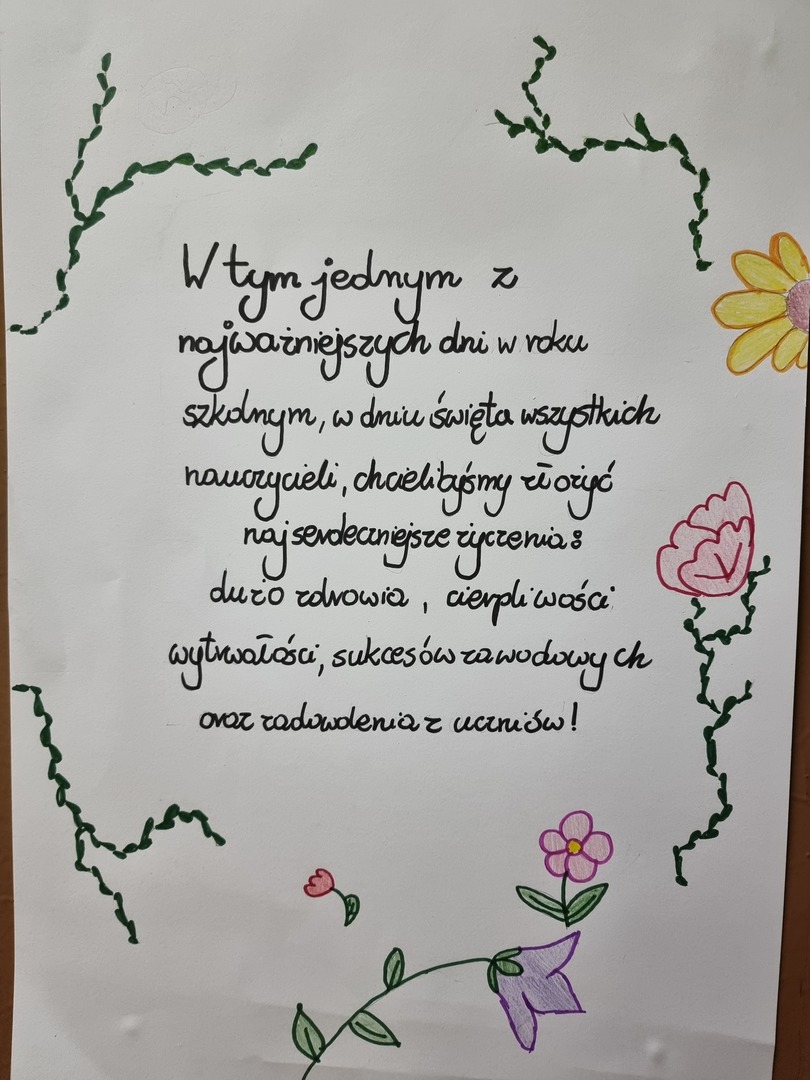 W tym jednym z
najważniejszych dni w roku
szkolnym, w dniu święta wszystkich
nauczycieli, chcielibyśmy złożyć
najserdeczniejsze życzenia:
dużo zdrowia, cierpliwości
wytrwałości, sukcesów zawodowych
oraz zadowolenia z uczniów!